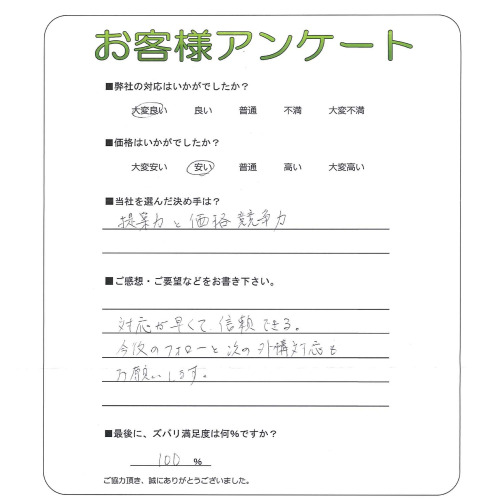 お客様アンケート
■弊社の対応はいかがでしたか?
大変良い 良い 普通 不満 大変不満
■価格はいかがでしたか?
大変安い 安い 普通 高い 大変高い
■当社を選んだ決め手は?
提案力と価格競争力
■ご感想・ご要望などをお書き下さい。
対応が早くて信頼できる。
今後のフォローと次の外構対応も
お願いします。
■最後に、ズバリ満足度は何%ですか?
100 %
ご協力頂き、誠にありがとうございました。